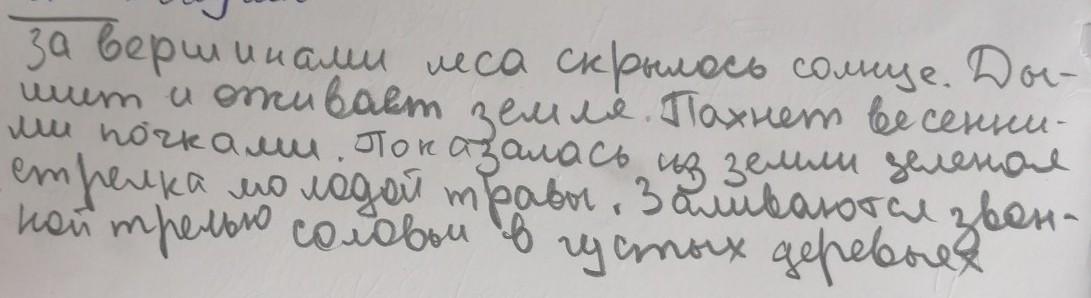 за вершинами леса скрылось солнце. Ды-
шит и оживает земля. Пахнет весенни-
ми почками. Показалась из земли зеленая
стрелка молодой травы. Заливаются звон-
кой трелью соловьи в густых деревьях